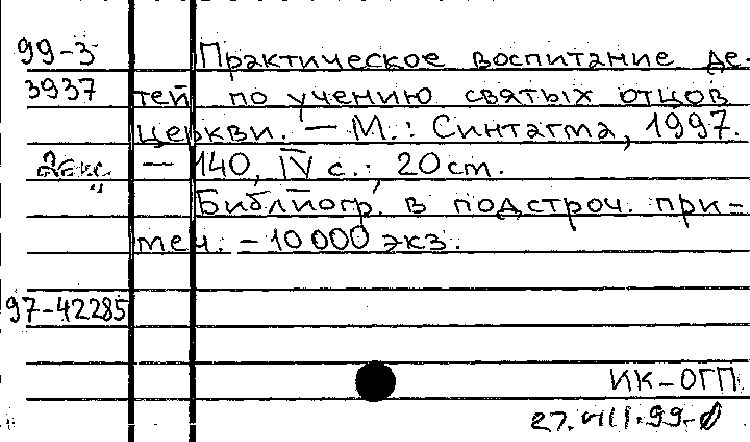 99-3 Практическое воспитание де-
3937 тей по учению святых отцов
церкви. — М.: Синтагма, 1997.
— 140, IV с.; 20 см.
Библиогр. в подстроч. при-
меч. - 10000 экз.
97-42285
ИК-ОГП